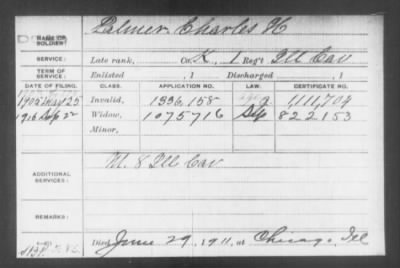 Palmer, Charles H
NAME OF SOLDIER:
SERVICE: Late rank, Co. K, 1 Reg't Ill Cav
TERM OF SERVICE: Enlisted , 1 Discharged , 1
DATE OF FILING. CLASS. APPLICATION NO. LAW. CERTIFICATE NO.
1905 May 25 Invalid, 1336,158 1,111,704
1916 Sep 22 Widow, 1075716 822153
Minor,
M. 8 Ill Cav
ADDITIONAL SERVICES:
REMARKS:
Died June 29, 1911, at Chicago, Ill